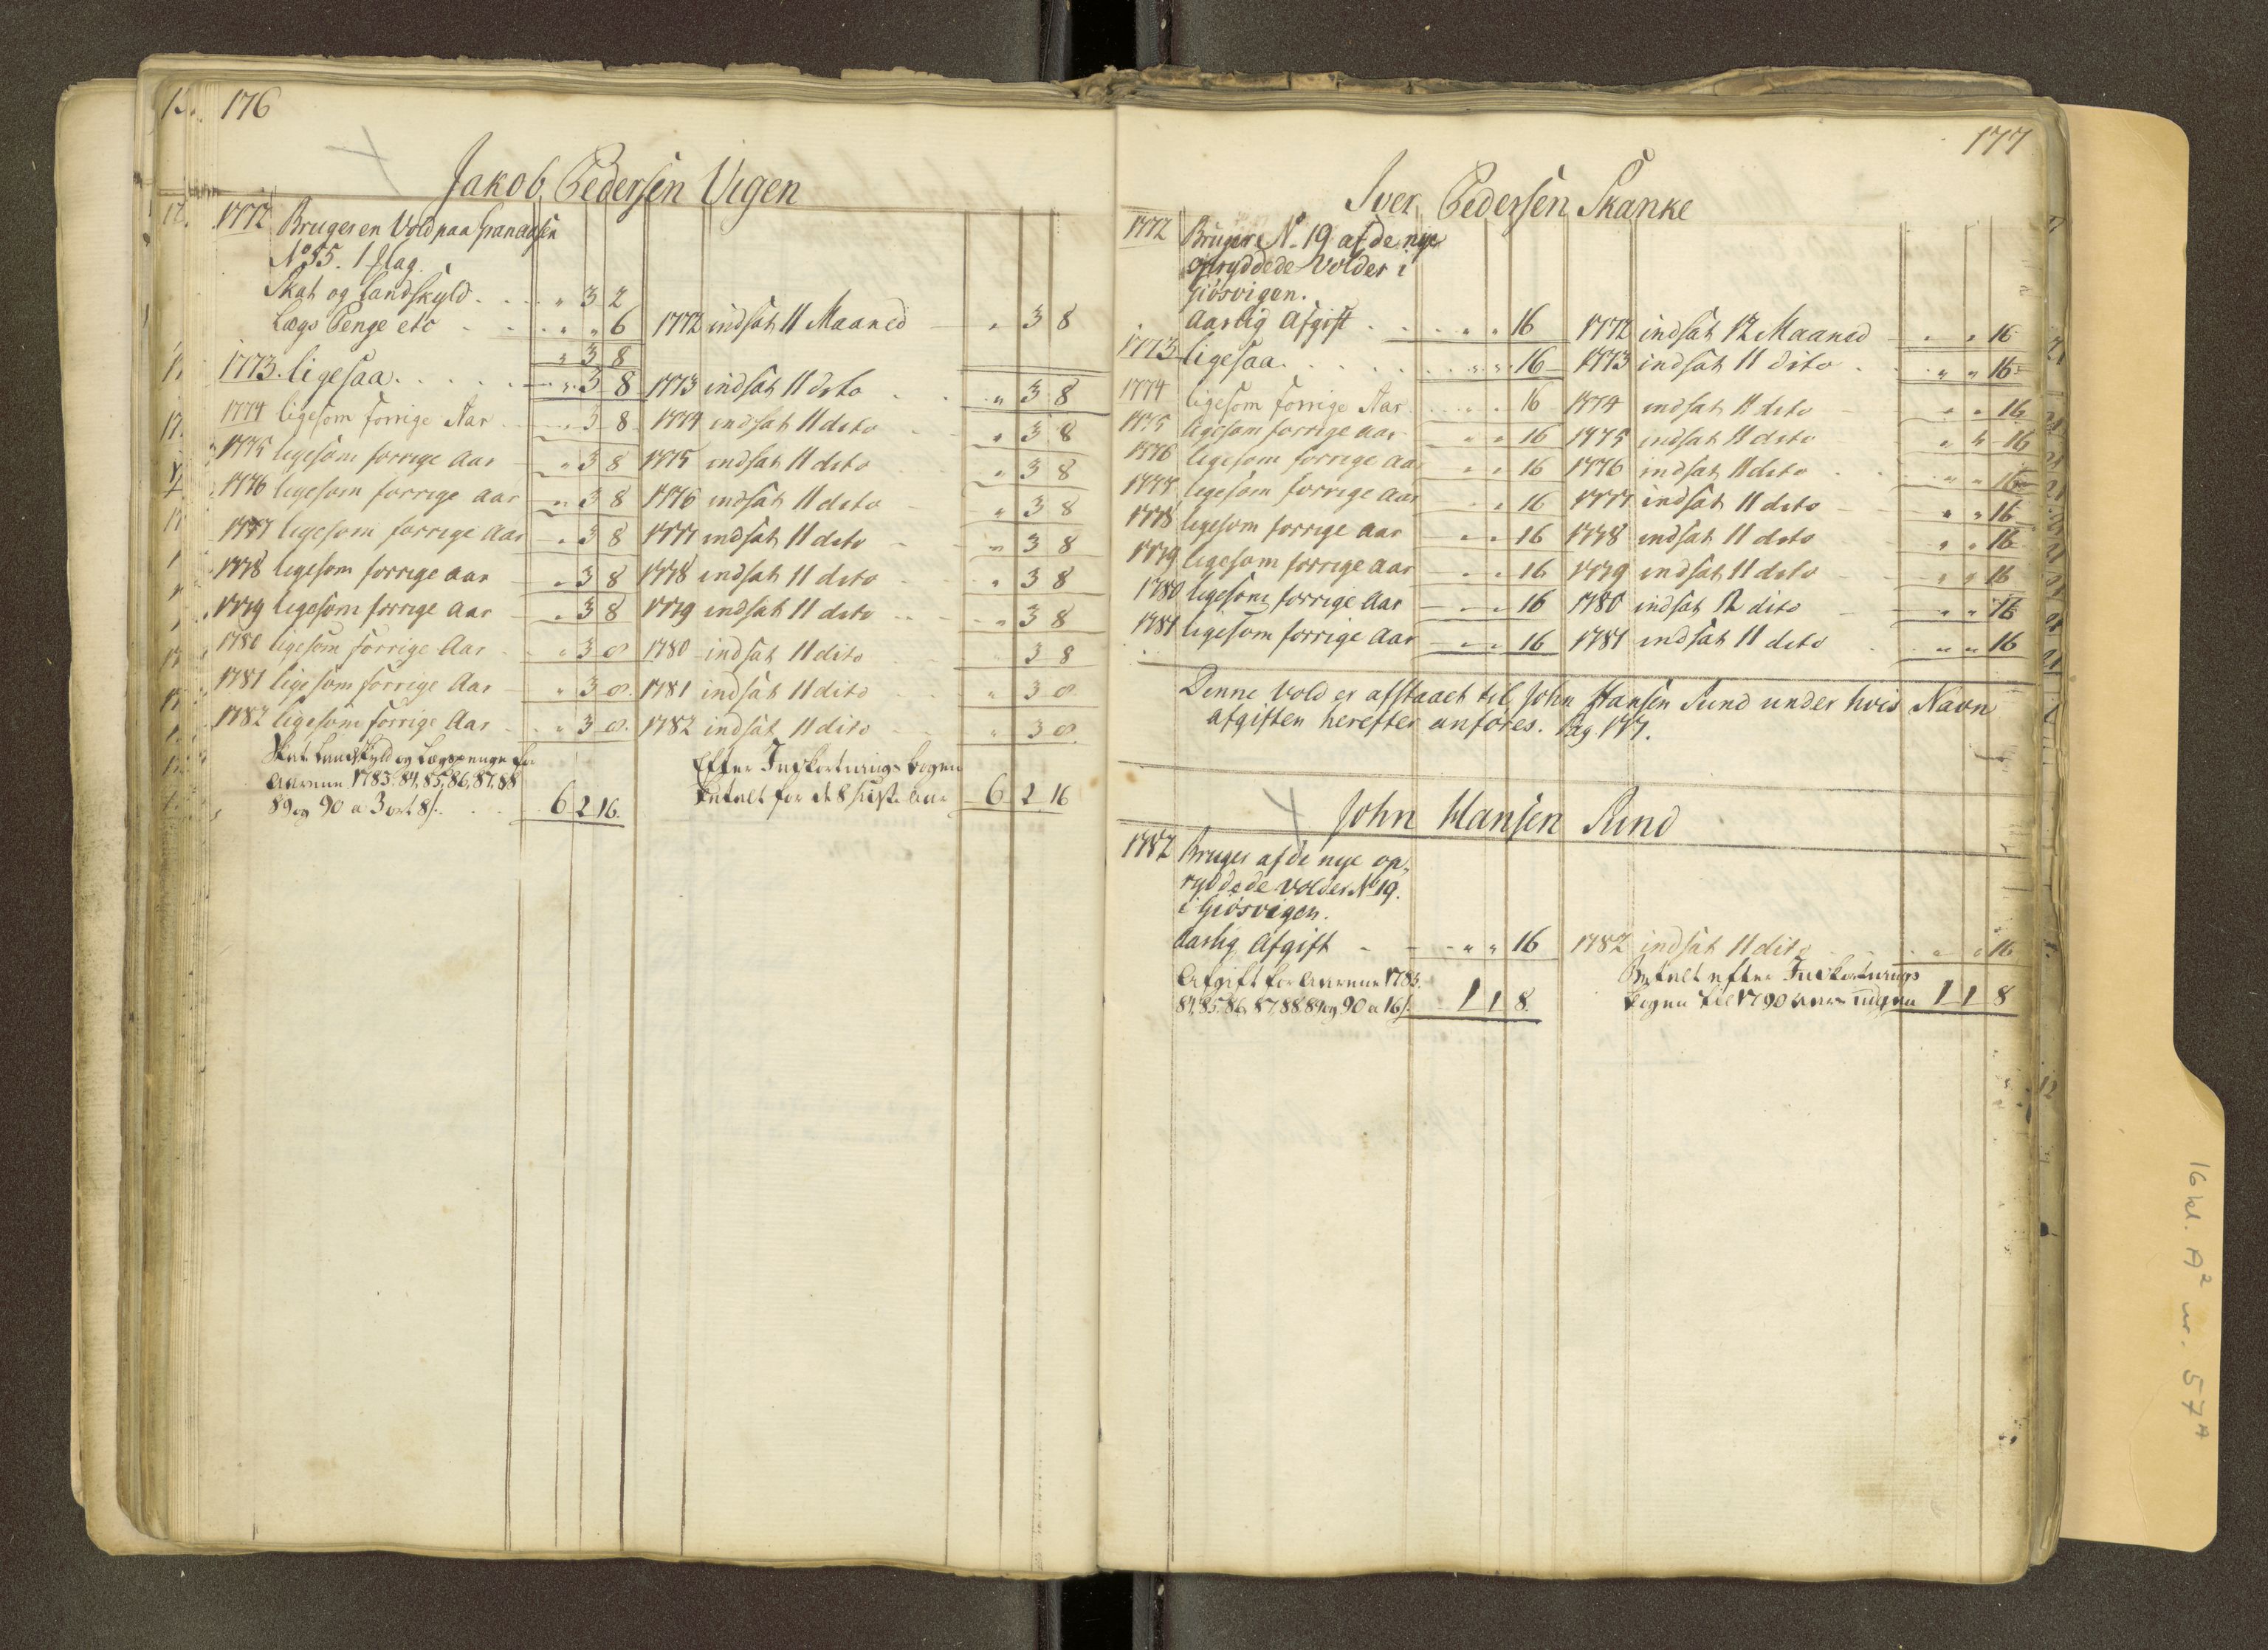 176
Jakob Pedersen Vigen
1772 Bruger en Vold paa Granaasen
No 55. 1 flag
Skat og Landskyld . . . " 3 2
Lægs Penge etc . . . " " 6 1772 indsat 11 Maaned " 3 8
" 3 8
1773. ligesaa . . . . . " 3 8 1773 indsat 11 dito . . " 3 8
1774 ligesom forrige Aar " 3 8 1774 indsat 11 dito " 3 8
1775 ligesom forrige Aar " 3 8 1775 indsat 11 dito " 3 8
1776 ligesom forrige aar " 3 8 1776 indsat 11 dito " 3 8
1777 ligesom forrige Aar " 3 8 1777 indsat 11 dito " 3 8
1778 ligesom forrige aar " 3 8 1778 indsat 11 dito " 3 8
1779 ligesom forrige Aar " 3 8 1779 indsat 11 dito " 3 8
1780 ligesom forrige Aar " 3 8 1780 indsat 11 dito 3 8
1781 ligesom forrige Aar " 3 8. 1781 indsat 11 dito " 3 8
1782 ligesom forrige Aar " 3 8. 1782 indsat 11 dito " 3 8
Skat Landskyld og Lægspenge for Efter Indkortnings bogen
Aarene 1783. 84, 85, 86, 87, 88 betalt for de 8 sidste Aar 6 2 16
89 og 90 a 3 ort 8 s. . . 6 2 16.
177
Iver Pedersen Skanke
1772 Bruger No 19 af de nye
opryddede Volder i
Giösvigen.
Aarlig Afgift . . . " " 16 1772 indsat 12 Maaned " " 16
1773 ligesaa . . . . . " " 16 1773 indsat 11 dito . " " 16
1774 ligesom forrige Aar " " 16 1774 indsat 11 dito " " 16
1775 ligesom forrige aar " " 16 1775 indsat 11 dito " " 16
1776 ligesom forrige aar " " 16 1776 indsat 11 dito " " 16
1777 ligesom forrige Aar " " 16 1777 indsat 11 dito " " 16
1778 ligesom forrige aar " " 16 1778 indsat 11 dito " " 16
1779 ligesom forrige aar " " 16 1779 indsat 11 dito " " 16
1780 ligesom forrige Aar " " 16 1780 indsat 12 dito " " 16
1781 ligesom forrige Aar " " 16 1781 indsat 11 dito " " 16
Denne Vold er afstaaet til John Hansen Sund under hvis Navn
afgiften herefter anföres. Pag 177.
John Hansen Sund
1782 Bruger af de nye op-
ryddede Volder No 19.
i Giösvigen.
Aarlig Afgift - " " 16 1782 indsat 11 dito " " 16
Afgift for Aarene 1783. Betalt efter Indkortnings
84, 85, 86, 87, 88, 89 og 90 a 16 s. 1 1 8. bogen til 1790 Aars 1 1 8
16 kl. A2 nr. 57A